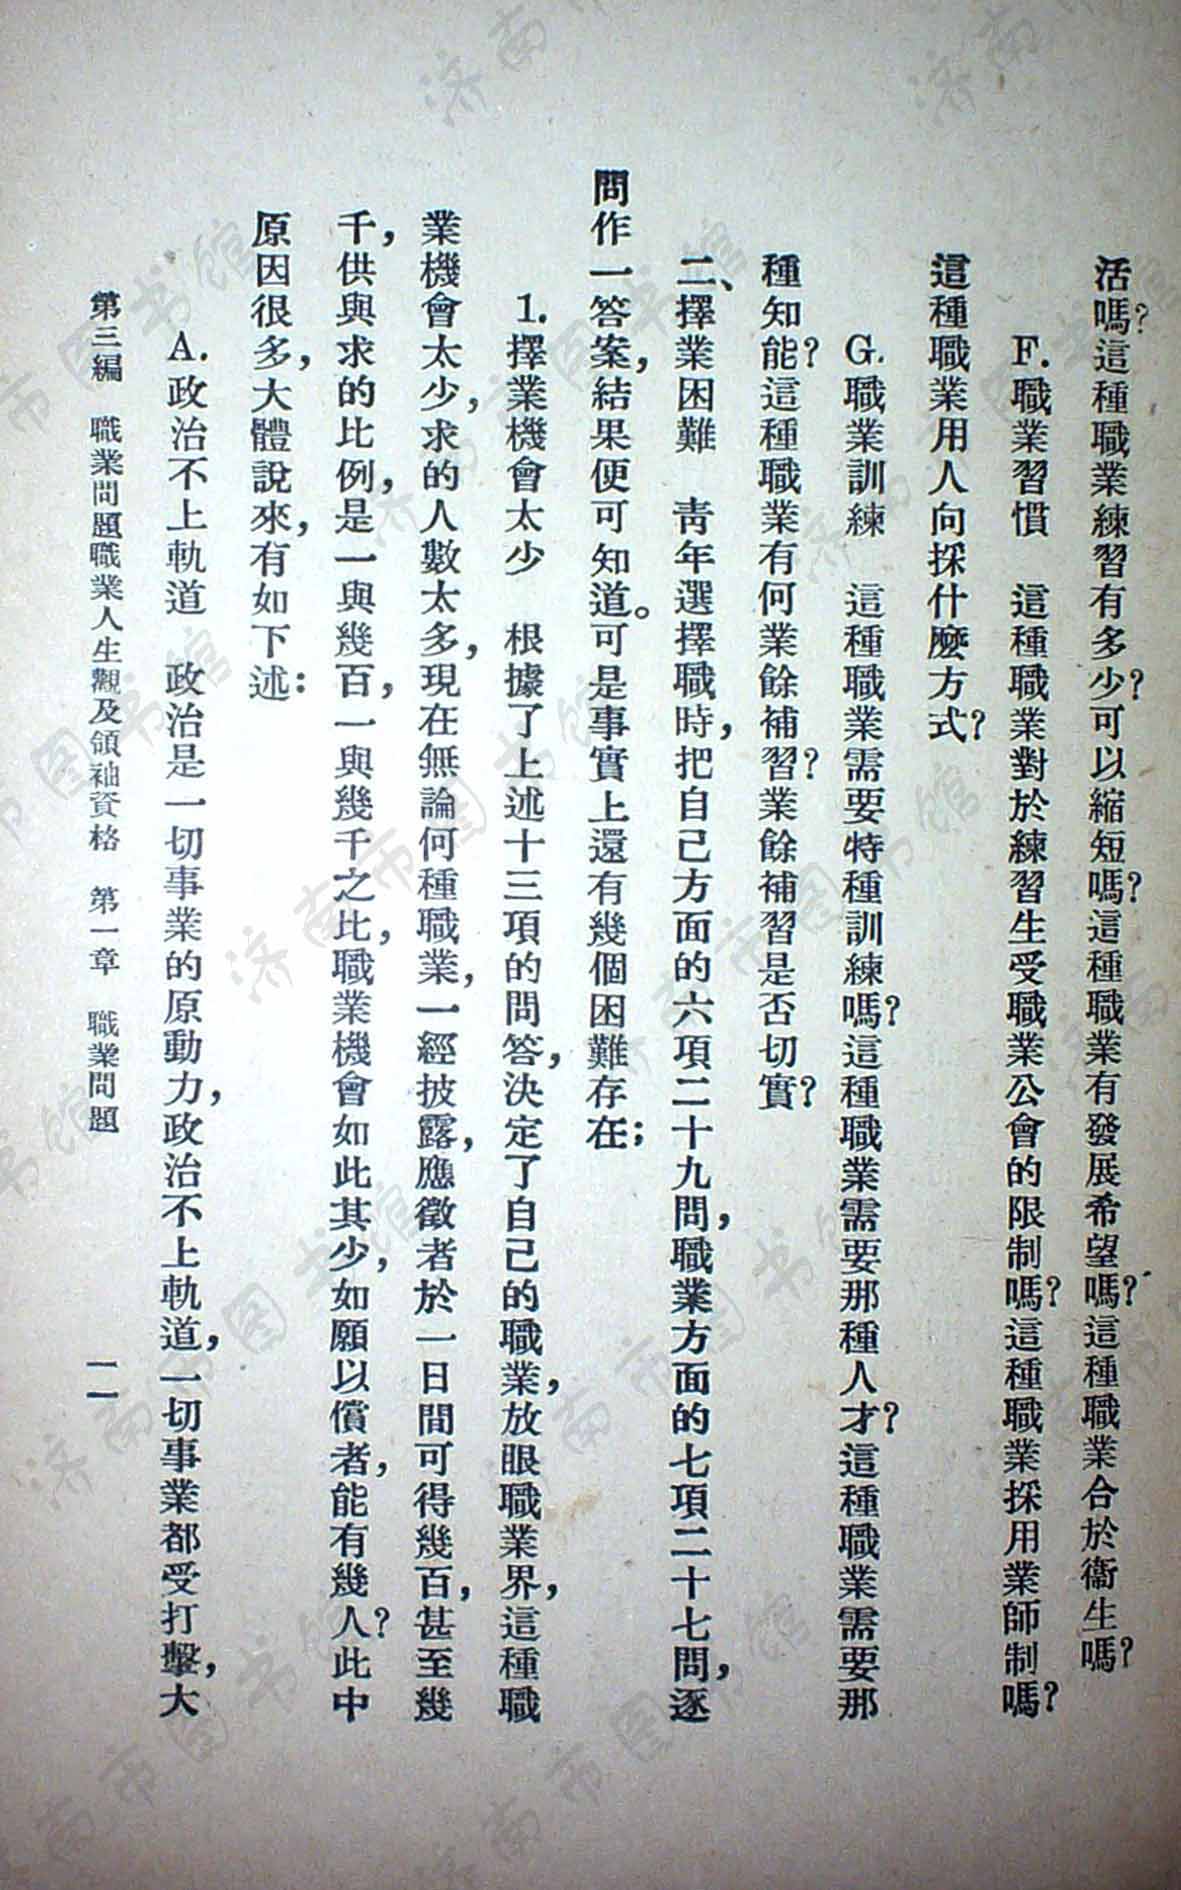 活嗎?這種職業練習有多少?可以縮短嗎?這種職業有發展希望嗎?這種職業合於衞生嗎?
F.職業習慣　這種職業對於練習生受職業公會的限制嗎?這種職業採用業師制嗎?
這種職業用人向採什麽方式?
G.職業訓練　這種職業需要特種訓練嗎?這種職業需要那種人才?這種職業需要那
種知能?這種職業有何業餘補習?業餘補習是否切實?
二、擇業困難　靑年選擇職時,把自己方面的六項二十九問,職業方面的七項二十七問,逐
問作一答案,結果便可知道。可是事實上還有幾個困難存在;
1.擇業機會太少　根據了上述十三項的問答,決定了自己的職業,放眼職業界,這種職
業機會太少,求的人數太多,現在無論何種職業,一經披露,應徵者於一日間可得幾百,甚至幾
千,供與求的比例,是一與幾百,一與幾千之比,職業機會如此其少,如願以償者,能有幾人?此中
原因很多,大體說來,有如下述:
A.政治不上軌道　政治是一切事業的原動力,政治不上軌道,一切事業都受打擊,大
第三編　職業問題職業人生觀及領袖資格　第一章　職業問題　一一
济南市图书馆